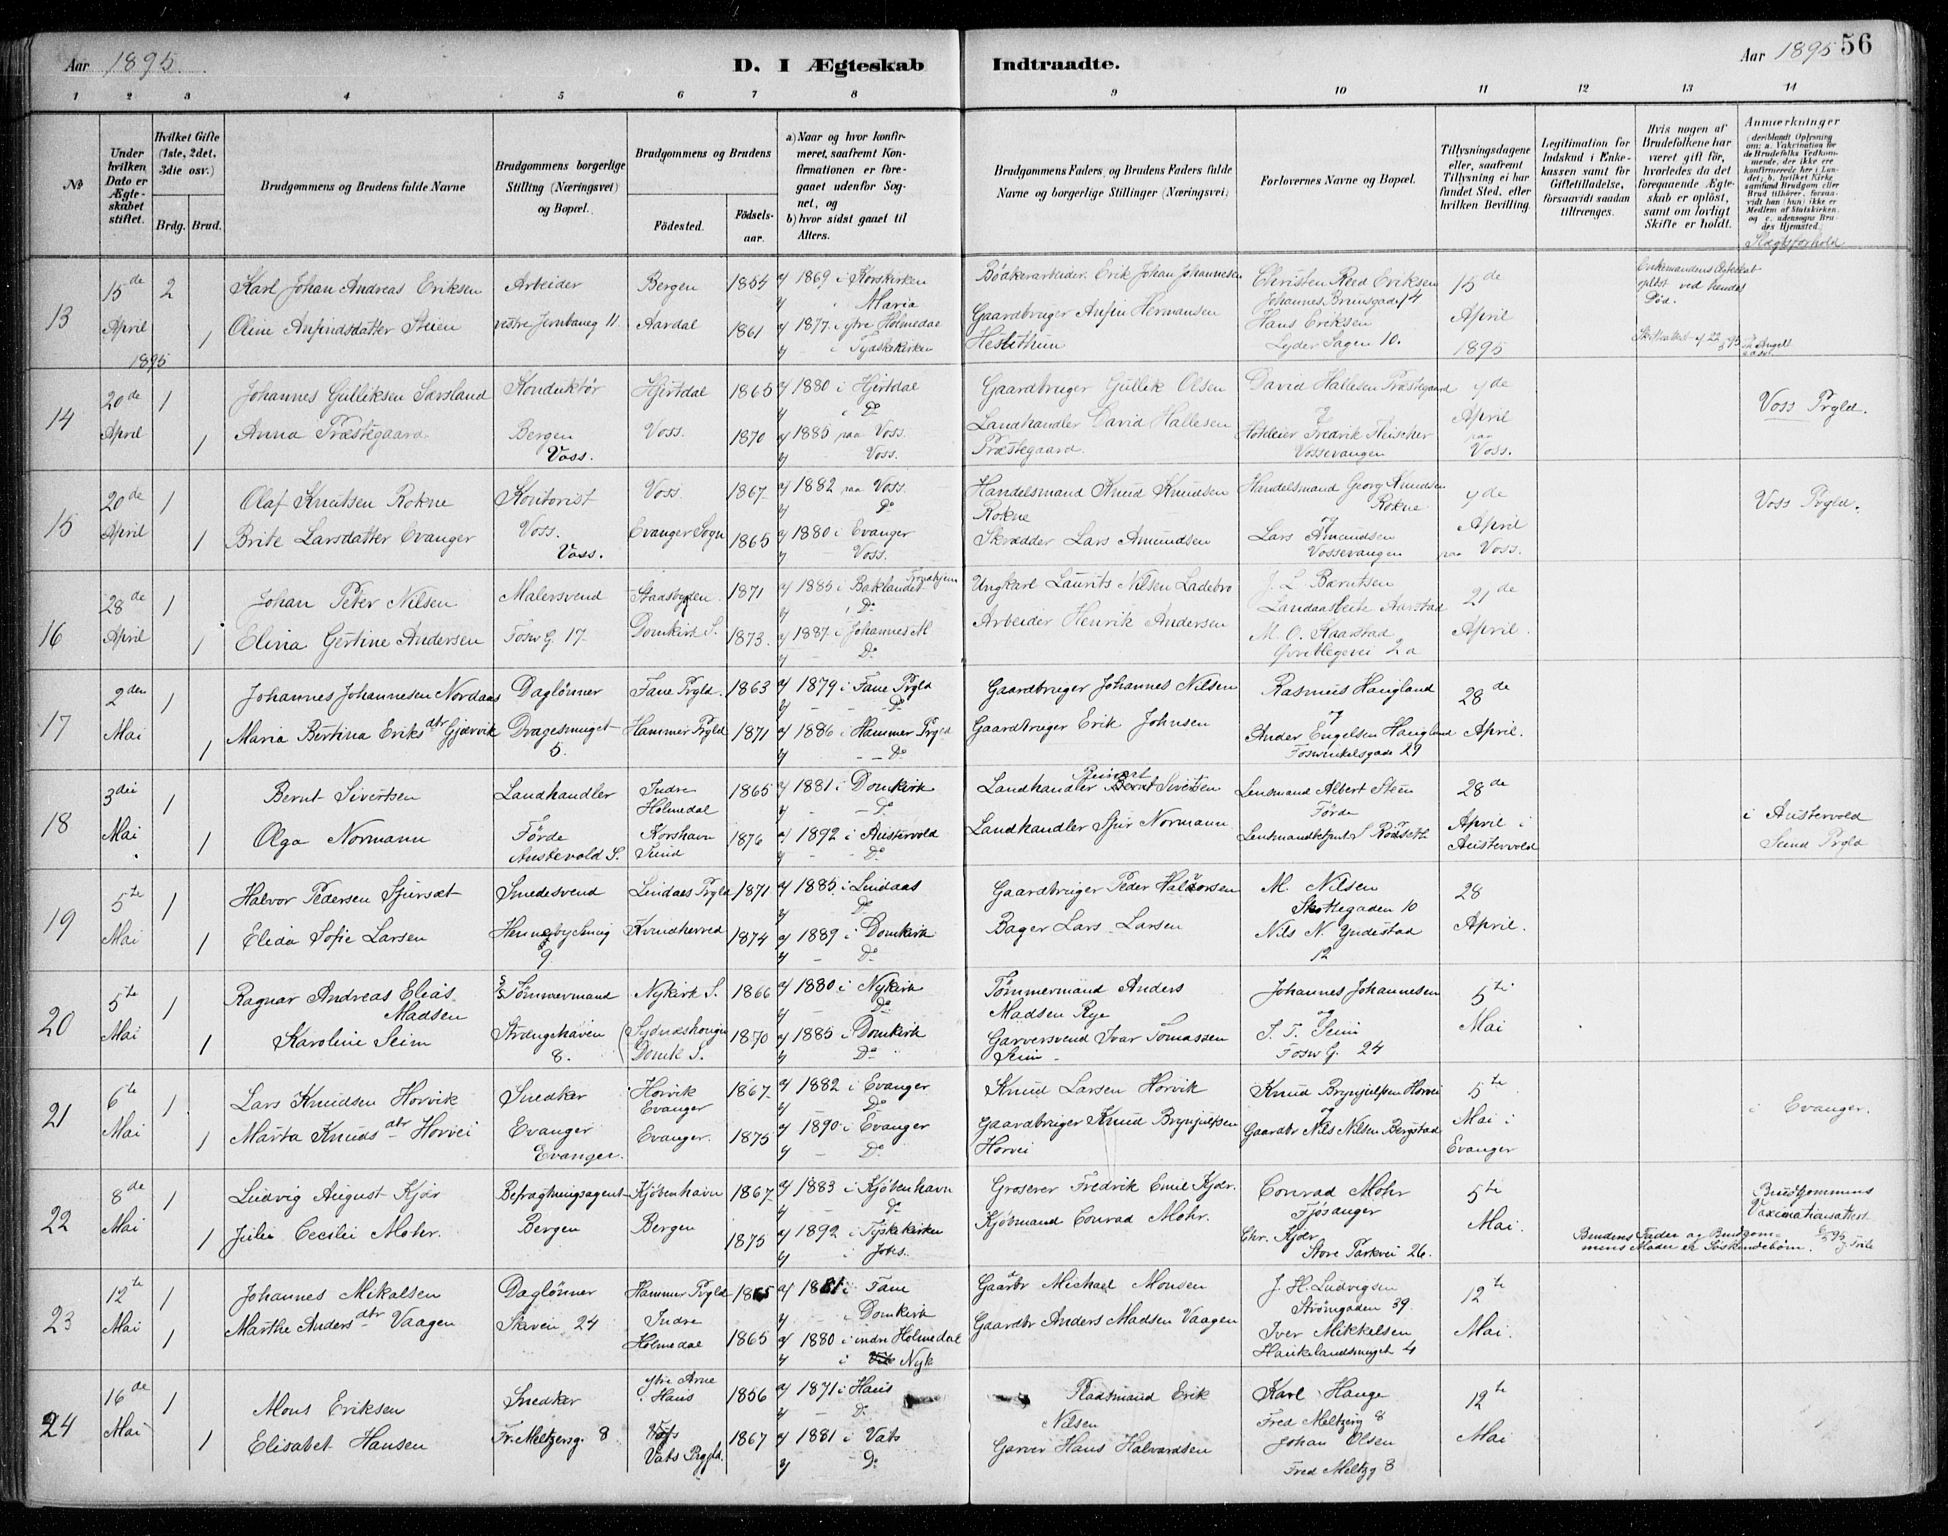 Aar 1895.
D. I Ægteskab Indtraadte.
Aar 1895 56
1 2 3 4 5 6 7 8 9 10 11 12 13 14
No
Under hvilken Dato er Ægteskabet stiftet.
Hvilket Gifte (1ste, 2det, 3die osv.)
Brdg. Brud.
Brudgommens og Brudens fulde Navne
Brudgommens borgerlige Stilling (Næringsvei) og Bopæl.
Brudgommens og Brudens
Fødested.
Fødselsaar.
a) Naar og hvor konfirmeret, saafremt Konfirmationen er foregaaet udenfor Sognet, og
b) hvor sidst gaaet til Alters.
Brudgommens Faders, og Brudens Faders fulde Navne og borgerlige Stillinger (Næringsvei)
Forlovernes Navne og Bopæl.
Tillysningsdagene eller, saafremt Tillysning ei har fundet Sted, efter hvilken Bevilling.
Legitimation for Indskud i Enkekassen samt for Giftetilladelse, forsaavidt saadan tiltrænges.
Hvis nogen af Brudefolkene har været gift før, hvorledes da det foregaaende Ægteskab er opløst, samt om lovligt Skifte er holdt.
Anmærkninger
(deriblandt Oplysning om: a. Vakcination for de Brudefolks Vedkommende, der ikke ere konfirmerede her i Landet; b. hvilket Kirkesamfund Brudgom eller Brud tilhører, forsaavidt han (hun) ikke er Medlem af Statskirken, og c. udensogns Brudes Hjemsted.
Slægtsforhold
13 15de April 1895 2 Karl Johan Andreas Eriksen Arbeider Bergen 1854 a) 1869 i Korskirken b) Maria Bødkerarbeider Erik Johan Johannesen Christen Reed Eriksen Johannes Brunsgade 14 15de April 1895 Enkemandens Ægteskab opløst ved hendes Død.
1 Oline Anfindsdatter Steien vestre Jernbaneg 11 Aardal 1861 a) 1877 i ytre Holmedal b) - i Tydskekirken Gaardbruger Anfin Hermansen Hestethun Hans Eriksen Lyder Sagen 10.
14 20de April 1 Johannes Gulliksen Sarsland Konduktør Hjertdal 1865 a) 1880 i Hjertdal b) i Do Gaardbruger Gullik Olsen David Hallesen Præstegaard og 7de April paa Voss. Voss Prgld.
1 Anna Præstegaard Bergen Voss. Voss. 1870 a) 1885 paa Voss. b) Voss. Landhandler David Hallesen Præstegaard. Hoteleier Fredrik Fleischer Vossevangen
15 20de April 1 Olaf Knutsen Rokne Kontorist Voss. 1867 a) 1882 paa Voss. b) Do Handelsmand Knud Knudsen Rokne Handelsmand Georg Knudsen Rokne og 7de April paa Voss. Voss Prgld.
1 Brite Larsdatter Evanger Voss. Voss. Evanger Sogn 1865 a) 1880 i Evanger b) - Voss. Skrædder Lars Amundsen Lars Amundsen Vossevangen
16 28de April 1 Johan Peter Nilsen Malersvend Stadsbygden 1871 a) 1885 i Baklandet Trondhjem b) i Do Ungkarl Laurits Nilsen Ladebro J. L. Berntsen Landaasleite Aarstad 21de April.
1 Elina Gertine Andersen Fosw G. 17 Domkirk S. 1873 a) 1887 i Johannes M b) - Do Arbeider Henrik Andersen M. O. Kaarstad Øvreblegevei 2a
17 2den Mai 1 Johannes Johannesen Nordaas Dagløner Fane Prgld. 1863 a) 1879 i Fane Prgld b) - - Do Gaardbruger Johannes Nilsen Rasmus Haugland og 28de April.
1 Maria Bertina Eriks dtr Gjervik Dragesmuget 5. Hammer Prgld 1871 a) 1886 i Hammer Prgld b) - - Do Gaardbruger Erik Johnsen Ander Engelsen Haugland Foswinkelsgade 27
18 3die Mai 1 Bernt Sivertsen Landhandler Indre Holmedal 1865 a) 1881 i Domkirk b) - - Do Landhandler Reinert Sivertsen Lensmand Albert Steen Førde 28de April i Austervold i Austervold Sund Prgld
1 Olga Normann Førde Austevold S. Korshavn Sund 1876 a) 1892 i Austervold b) - - Do Landhandler Sjur Normann Lensmandsbetjent S Rødseth
19 5te Mai 1 Halvor Pedersen Sjursæt Smedesvend Lindaas Prgld 1871 a) 1885 i Lindaas b) Do Gaardbruger Peder Halvorsen M. Nilsen Skottegaden 10 28 April.
1 Elida Sofie Larsen 9. Kvindherred 1874 a) 1889 i Domkirk b) - Do Bager Lars Larsen Nils N. Yndestad 12
20 5te Mai 1 Ragnar Andreas Elias Madsen Tømmermand Nykirk S. 1866 a) 1880 i Nykirk b) - Do Tømmermand Anders Madsen Rye Johannes Johannesen og 5te Mai
1 Karoline Seim Strangehaven 8. Sydnæshougen Domk S. 1870 a) 1885 i Domkirk b) Do Garversvend Ivar Tomassen Seim S. T. Seim Fosw G. 24
21 6te Mai 1 Lars Knudsen Horvik Snedker Horvik Evanger 1867 a) 1882 i Evanger b) Do Knud Larsen Horvik Knud Brynjulfsen Horvei og 5te Mai i Evanger i Evanger.
1 Marta Knuds dtr Horvei Evanger Evanger. Evanger. 1875 a) 1890 i Evanger b) - Do Gaardbruger Knud Brynjulfsen Horvei Gaardbr Nils Nilsen Bergstad
22 8de Mai 1 Ludvig August Kjær Befragtningsagent Kjøbenhavn 1867 a) 1883 i Kjøbenhavn b) - Do Groserer Fredrik Emil Kjær. Conrad Mohr Fjøsanger 5te Mai. Brudgommens Vaxinationsattest
1 Julie Cecilie Mohr. Bergen Bergen 1875 a) 1892 i Tyskekirken b) i Johs. Kjøbmand Conrad Mohr. Chr. Kjær Store Parkvei 26. Brudens Fader og Brudgommens Moder er Søskendebørn.
23 12te Mai 1 Johannes Mikalsen Dagløner Hammer Prgld 1865 a) 1881 i Fane b) - Domkirk Gaardbr Michael Monsen J. H. Ludvigsen Strømgaden 39 12te Mai.
1 Marthe Anders dtr Vaagen Skiven 24 Indre Holmedal 1865 a) 1880 i indre Holmedal b) i Nyk Gaardbr Anders Madsen Vaagen Iver Mikkelsen Haukelandsmuget 4
24 16de Mai 1 Mons Eriksen Snedker ytre Arne Haus 1856 a) 1871 i Haus b) - Do Pladsmand Erik Nilsen Karl Hauge Fred Meltzerg 8 12te Mai
1 Elisabet Hansen Fr. Meltzersg. 8 Vats Prgld. 1867 a) 1881 i Vats b) - Do Garver Hans Halvardsen Johan Olsen Fred Meltzg 8